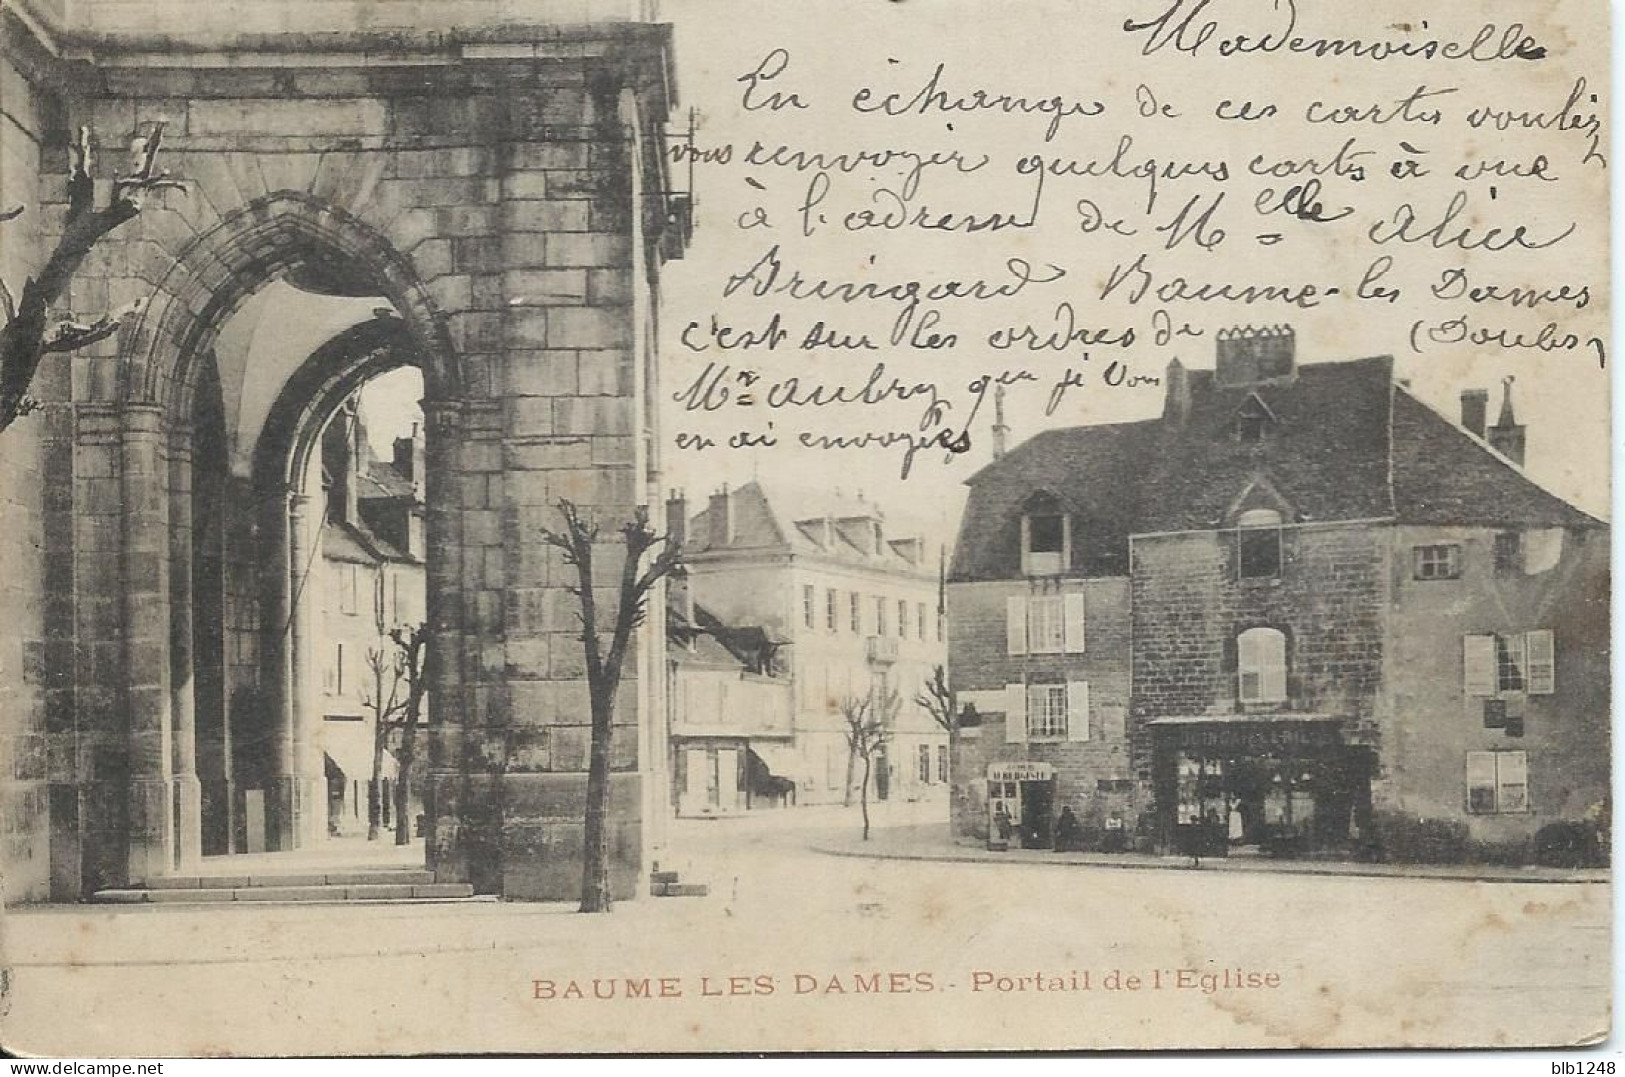 Mademoiselle
En échange de ces cartes voulez
vous renvoyer quelques cartes à vue
à l'adresse de Melle Alice
Bringard Baume-les Dames
c'est sur les ordres de (Doubs)
Mr Aubry que je vous
en ai envoyées
QUINCAILLERIE
BAUME LES DAMES.- Portail de l'Eglise
blb1248